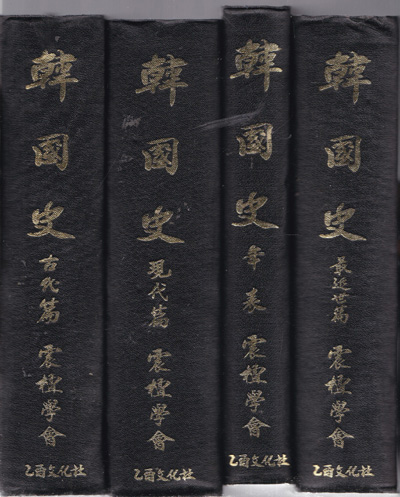 韓國史 古代篇 震檀學會
乙酉文化社
韓國史 現代篇 震檀學會
乙酉文化社
韓國史 年表 震檀學會
乙酉文化社
韓國史 最近世篇 震檀學會
乙酉文化社